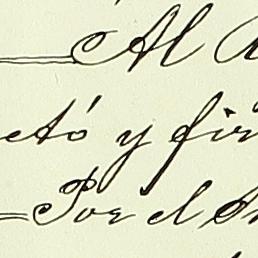 Al
ctó y fir
Por el